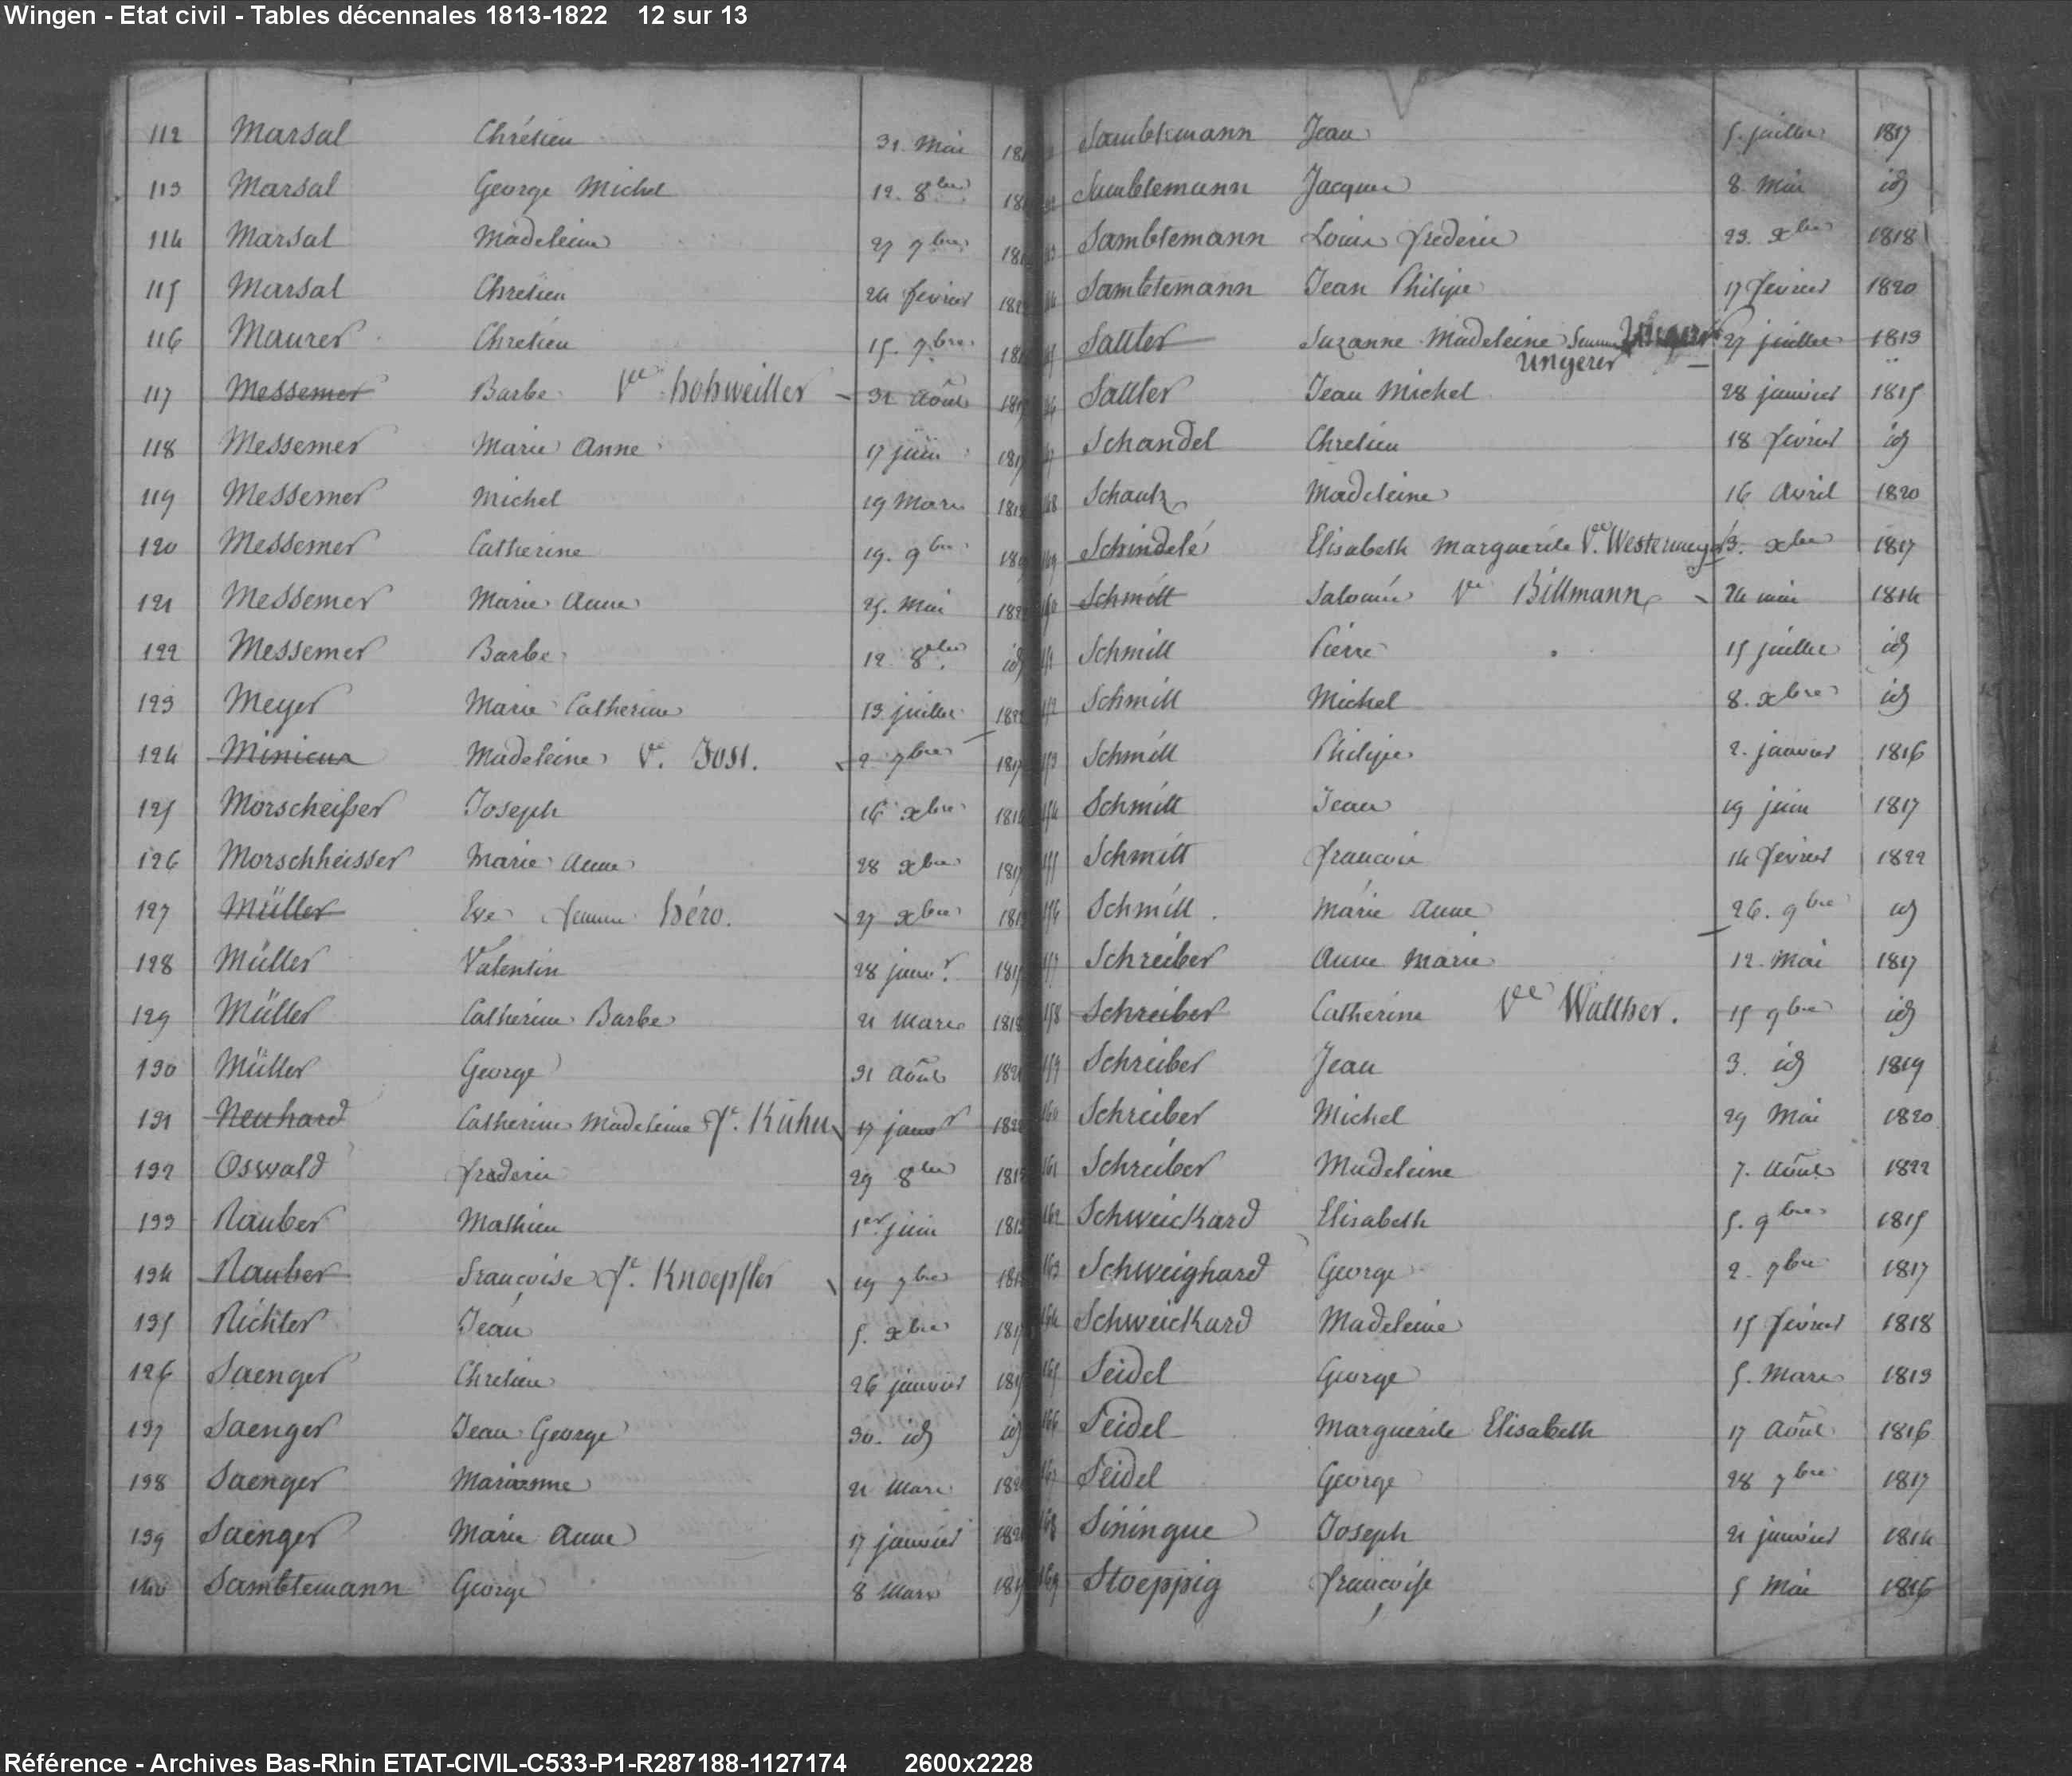 Wingen - Etat civil - Tables décennales 1813-1822 12 sur 13
112 Marsal Chrétien 31 Mai
113 Marsal George Michel 12. 8bre
114 Marsal Madeleine 27 7bre
115 Marsal Chrétien 24 fevrier
116 Maurer Chretien 15. 9bre
117 Messemer Barbe Ve hohweiller 31 août
118 Messemer Marie Anne 17 juin 1817
119 Messemer Michel 19 Mars
120 Messemer Catherine 19. 9bre
121 Messemer Marie Anne 25. Mai
122 Messemer Barbe 12 8bre id
123 Meyer Marie Catherine 13 juillet 1822
124 Minicus Madeleine Ve. Jost. 2 7bre 1817
125 Morscheißer Joseph 16 xbre
126 Morschheisser Marie Anne 28 xbre 1817
127 Müller Eve femme héro. 27 xbre
128 Müller Valentin 28 janvr.
129 Müller Catherine Barbe 21 Mars 1818
130 Müller George 31 Août
131 Neuhard Catherine Madeleine fe. Kuhn 17 janvr 1822
132 Oswald frederic 29 8bre
133 Rauber Mathieu 1er juin
134 Rauber Françoise fe. Knoepfler 19 7bre
135 Richter Jean 5. xbre
126 Saenger Chretien 26 janvier
137 Saenger Jean George 30. id id
138 Saenger Marianne 21 Mars
139 Saenger Marie Anne 17 janvier
140 Sambtemann George 8 Mars
Sambtemann Jean 5. juillet 1817
Sambtemann Jacques 8. Mai id
Sambtemann Louis frederic 23. xbre 1818
Sambtemann Jean Philipe 17 fevrier 1820
Sattler Suzanne Madeleine femme 27 juillet 1813
Ungerer
Sattler Jean Michel 28 janvier 1815
Schandel Chretien 18 fevrier id
Schautz Madeleine 16 Avril 1820
Schindelé Elisabeth Marguerite Ve. Westermeyer 3. xbre 1817
Schmitt Salomé Ve Billmann 24 mai 1814
Schmitt Pierre 15 juillet id
Schmitt Michel 8. xbre id
Schmitt Philipe 2. janvier 1816
154 Schmitt Jean 19 juin 1817
155 Schmitt francois 14 fevrier 1822
156 Schmitt Marie Anne 26. 9bre id
157 Schreiber Anne Marie 12. Mai 1817
158 Schreiber Catherine Ve Walther. 15 9bre id
159 Schreiber Jean 3. id 1819
160 Schreiber Michel 29 Mai 1820
161 Schreiber Madeleine 7. Août 1822
162 Schweickard Elisabeth 5. 9bre 1815
163 Schweighard George 2. 7bre 1817
164 Schweickard Madeleine 15 fevrier 1818
165 Seidel George 5. Mars 1813
166 Seidel Marguerite Elisabeth 17 Août 1816
167 Seidel George 28 7bre 1817
168 Siningue Joseph 21 janvier 1814
169 Stoeppig françoise 5 Mai 1816
Référence - Archives Bas-Rhin ETAT-CIVIL-C533-P1-R287188-1127174 2600x2228